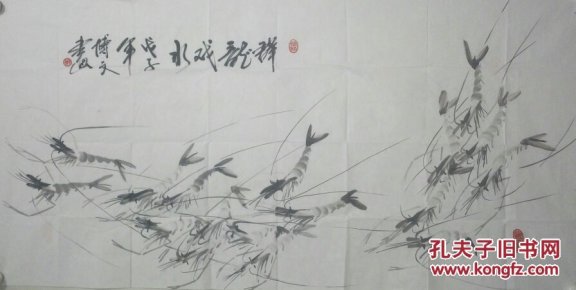 群龙戏水
戊子年
博文
孔夫子旧书网
www.kongfz.com